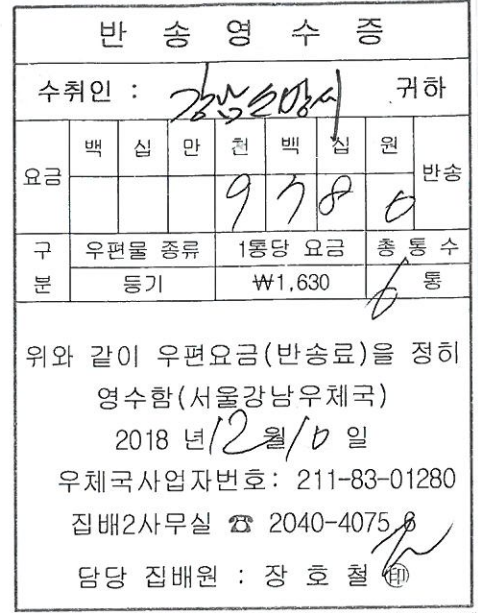 반 송 영 수 증
수취인 : 강남소방서 귀하
요금 백 십 만 천 백 십 원 반송
9 7 8 0
구분 우편물 종류 1통당 요금 총 통 수
등기 ₩1,630 6 통
위와 같이 우편요금(반송료)을 정히
영수함(서울강남우체국)
2018 년 12 월 10 일
우체국사업자번호: 211-83-01280
집배2사무실 ☎ 2040-4075
담당 집배원 : 장 호 철 ㊞